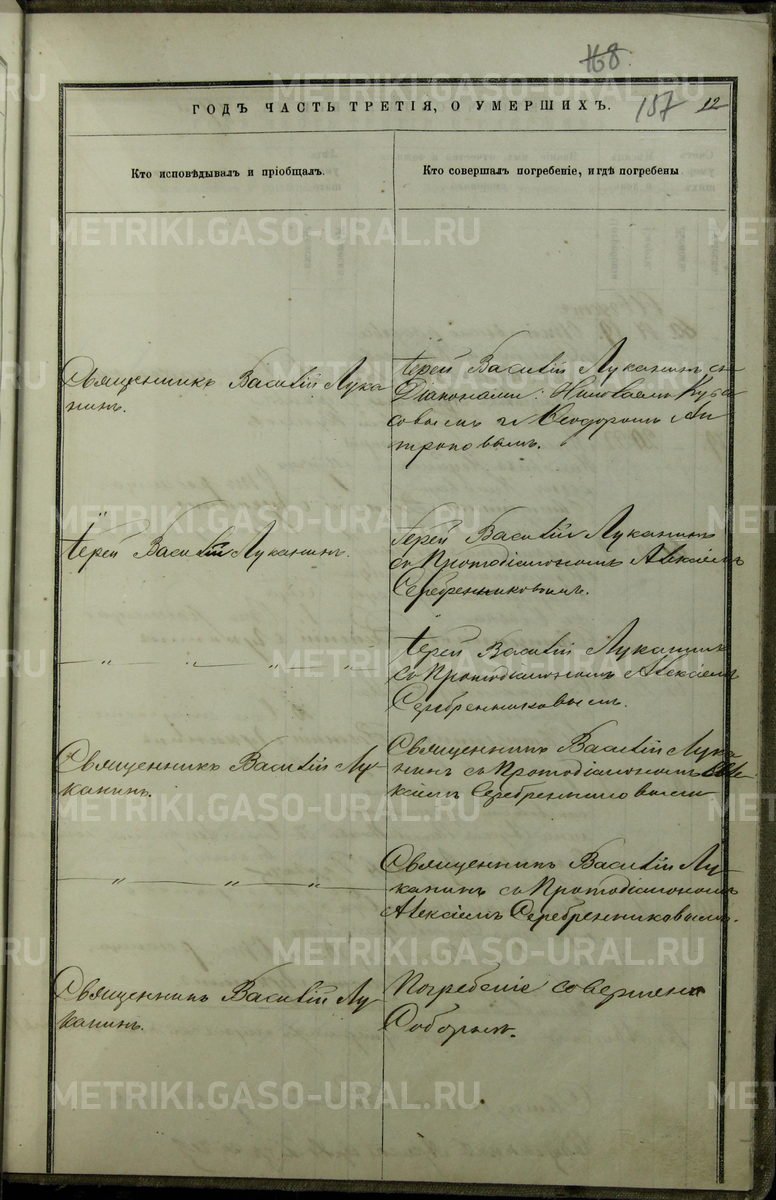 168
ГОДЪ ЧАСТЬ ТРЕТІЯ, О УМЕРШИХЪ.
157
12
Кто исповѣдывалъ и пріобщалъ.
Кто совершалъ погребеніе, и гдѣ погребены
Священникъ Василій Лука
нинъ.
Іерей Василій Луканинъ съ
Діаконами: Николаемъ
и Ѳеодоромъ Ан
троповымъ.
Іерей Василій Луканинъ.
Іерей Василій Луканинъ
съ Протодіакономъ Алексіемъ
Серебренниковымъ.
— " " " " —
Іерей Василій Луканинъ
съ Протодіакономъ Алексіемъ
Серебренниковымъ.
Священникъ Василій Лу-
канинъ.
Священникъ Василій Лука
нинъ съ Протодіакономъ Але
ксіемъ Серебренниковымъ
— " " " —
Священникъ Василій Лу-
канинъ съ Протодіакономъ
Алексіемъ Серебренниковымъ.
Священникъ Василій Лу
канинъ.
Погребеніе совершено
Соборнѣ.
METRIKI.GASO-URAL.RU